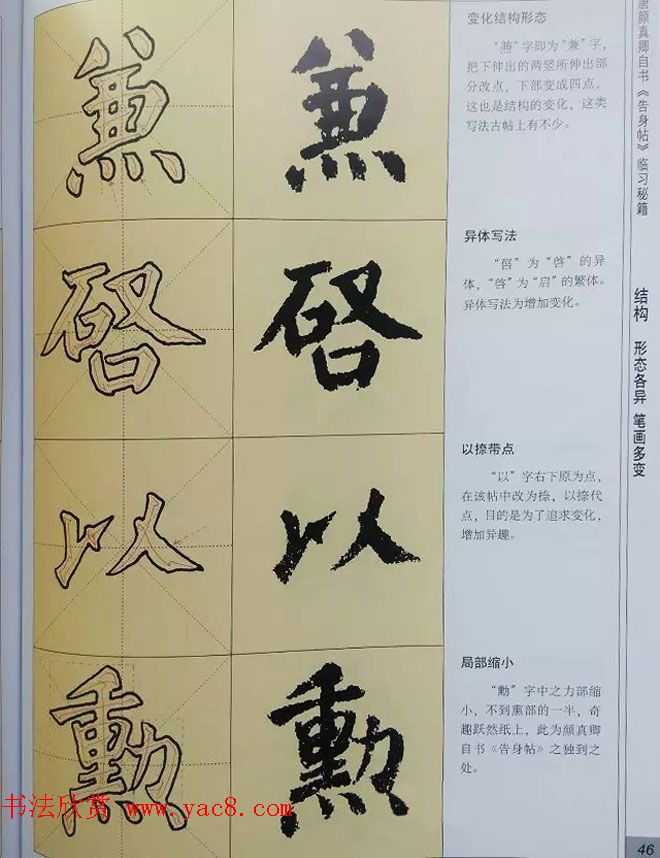 兼
变化结构形态
“𠔥”字即为“兼”字，
把下伸出的两竖所伸出部
分改点，下部变成四点，
这也是结构的变化，这类
写法古帖上有不少。
啓
异体写法
“唘”为“啓”的异
体，“啓”为“启”的繁体。
异体写法为增加变化。
以
以捺带点
“以”字右下原为点，
在该帖中改为捺，以捺代
点，目的是为了追求变化，
增加异趣。
勲
局部缩小
“勳”字中之力部缩
小，不到熏部的一半，奇
趣跃然纸上，此为颜真卿
自书《告身帖》之独到之
处。
唐颜真卿自书《告身帖》临习秘籍
结构 形态各异 笔画多变
46
书法欣赏 www.yac8.com